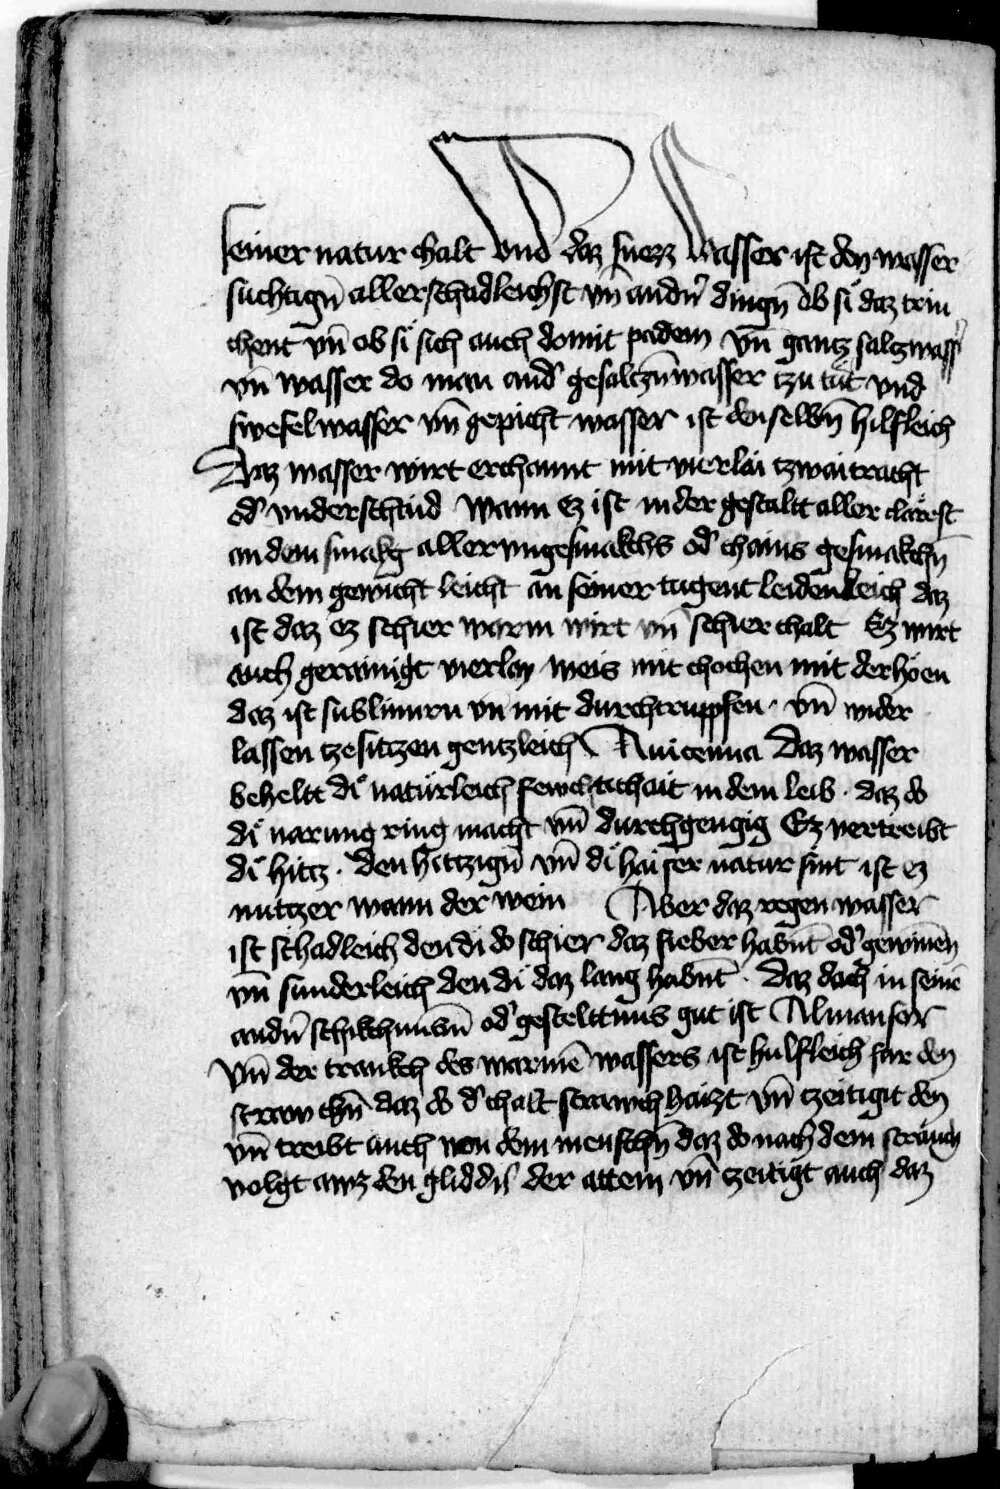 seiner natur chalt vnd daz suezz wasser ist den wasser
suchtign̄ aller schadleichst vn̄ andn̄ dingn̄ ob si daz trin
chent vn̄ ob si sich auch domit padem vn̄ gantz saltzwassˀ
vn̄ wasser do man andˀ gesaltzn̄ wasser tzu tut vnd
swefel wasser vn̄ gepicht wasser ist denselbn̄ hilfleich
Daz wasser wirt erchannt mit vierlai tzwaitracht
odˀ vnderschaid Wann ez ist in der gestaltt aller clarest
an dem smakg aller vngesmakchs odˀ chains gesmakchn̄
an dem gewicht leicht an seiner tugent leidenleich daz
ist daz ez schier warm wirt vn̄ schier chalt Ez wirt
auch gerainigt vierlay weis mit chochen mit der höen
daz ist sublimirn vn̄ mit durchtruppfen · vn̄ wider
lassen tzesitzen gentzleich Auicenna Daz wasser
beheltt di naturleich fewchtichait in dem leib · daz do
di narung ring macht vn̄ durchgengig Ez vertreibt
di hitz · den hittzign̄ vn̄ di haiser natur sint ist ez
nuttzer wann der wein Aber daz regen wasser
ist schadleich den di do schier daz fieber habn̄t odˀ gewinnen̄
vn̄ sunderleich den di daz lang habn̄t · Daz doch in seinē
andn̄ schikchnusn̄ odˀ gestelttnus gut ist Almansor
Vn̄ der trankch des warmē wassers ist hulfleich fur den
strawchn̄ daz do dˀ chalt strawch haizt vn̄ tzeitigt den
vn̄ treibt auch von dem menschn̄ daz do nach dem strauch
volgt awz den gliddn̄ der attem vn̄ tzeitigt auch daz